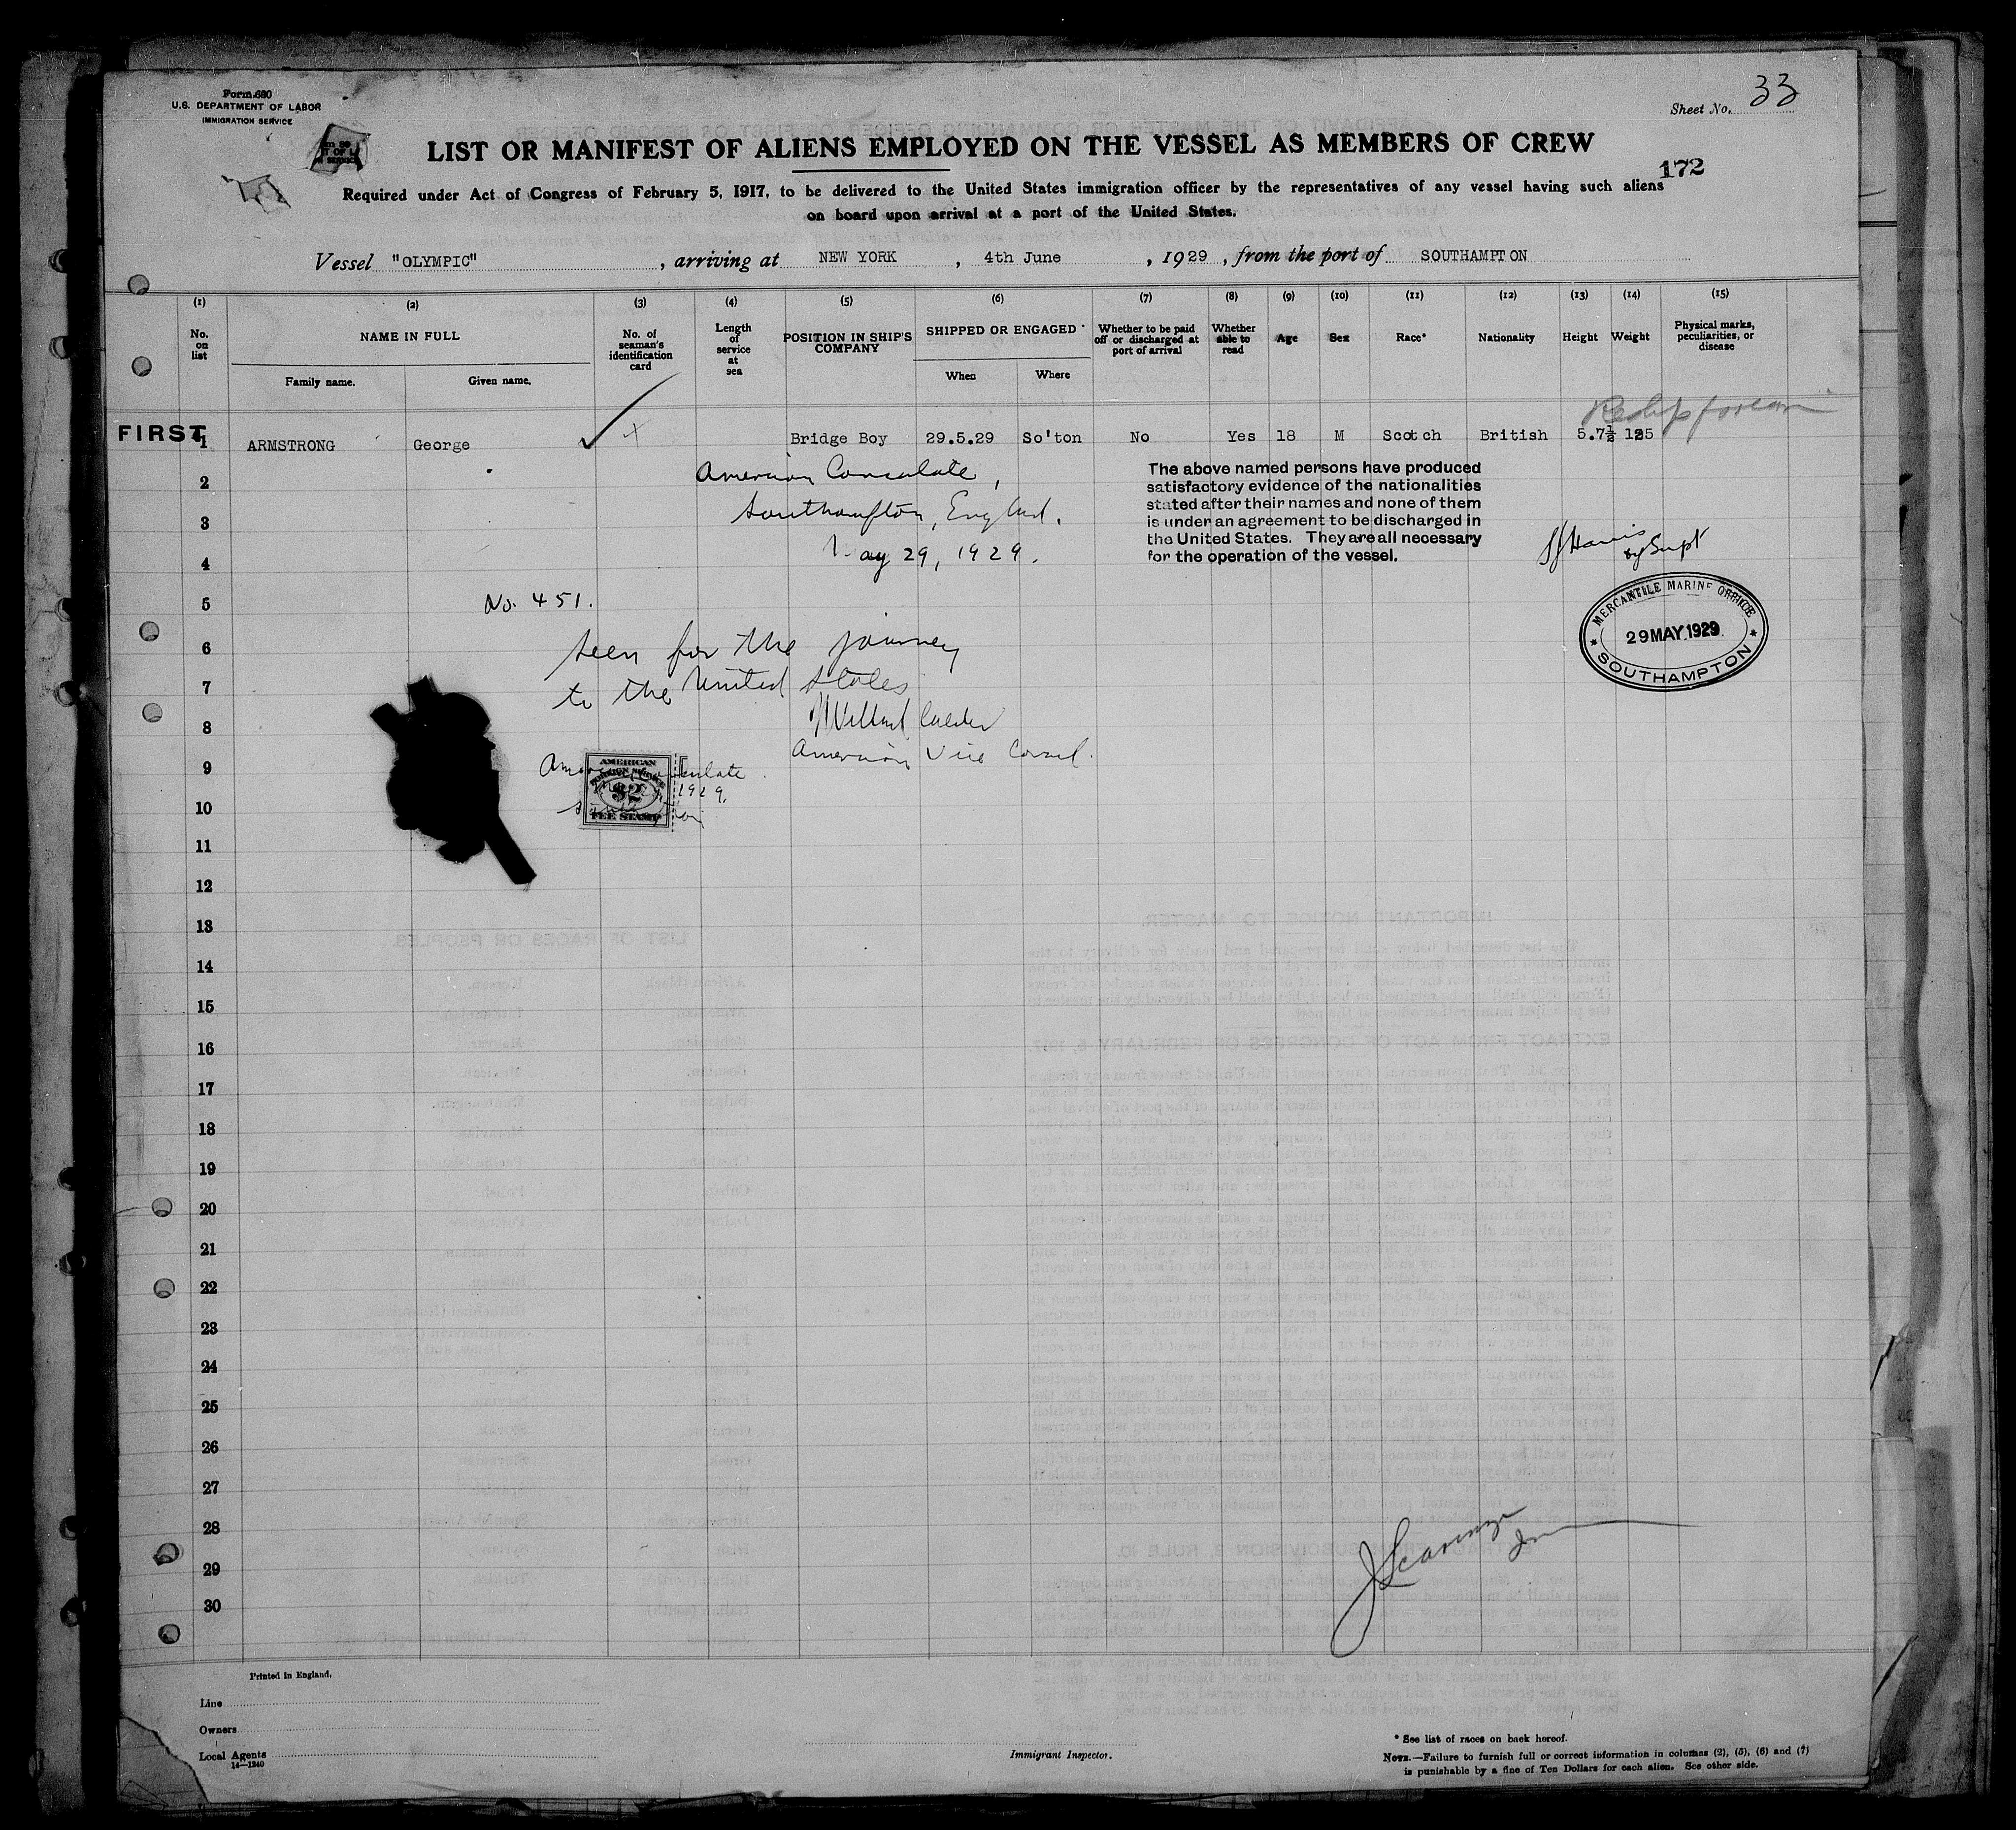 Form 680
U.S. DEPARTMENT OF LABOR
IMMIGRATION SERVICE
Sheet No. 33
LIST OR MANIFEST OF ALIENS EMPLOYED ON THE VESSEL AS MEMBERS OF CREW
172
Required under Act of Congress of February 5, 1917, to be delivered to the United States immigration officer by the representatives of any vessel having such aliens
on board upon arrival at a port of the United States.
Vessel "OLYMPIC", arriving at NEW YORK, 4th June, 1929, from the port of SOUTHAMPTON
(1) (2) (3) (4) (5) (6) (7) (8) (9) (10) (11) (12) (13) (14) (15)
No. on list
NAME IN FULL
Family name. Given name.
No. of seaman's identification card
Length of service at sea
POSITION IN SHIP'S COMPANY
SHIPPED OR ENGAGED
When Where
Whether to be paid off or discharged at port of arrival
Whether able to read
Age
Sex
Race*
Nationality
Height
Weight
Physical marks, peculiarities, or disease
FIRST
1 ARMSTRONG George Bridge Boy 29.5.29 So'ton No Yes 18 M Scotch British 5.7½
2
American Consulate,
3
Southampton, England.
4
May 29, 1929.
The above named persons have produced
satisfactory evidence of the nationalities
stated after their names and none of them
is under an agreement to be discharged in
the United States. They are all necessary
for the operation of the vessel.
Harris
Supt
MERCANTILE MARINE OFFICE
29 MAY.1929
SOUTHAMPTON
5
No. 451.
6
Seen for the journey
7
to the United States
8
9
American Vice Consul.
AMERICAN
FOREIGN SERVICE
$2
FEE STAMP
1929,
10
11
12
13
14
15
16
17
18
19
20
21
22
23
24
25
26
27
28
29
30
Printed in England.
Line
Owners
Local Agents
14—1240
Immigrant Inspector.
* See list of races on back hereof.
NOTE.—Failure to furnish full or correct information in columns (2), (5), (6) and (7)
is punishable by a fine of Ten Dollars for each alien. See other side.